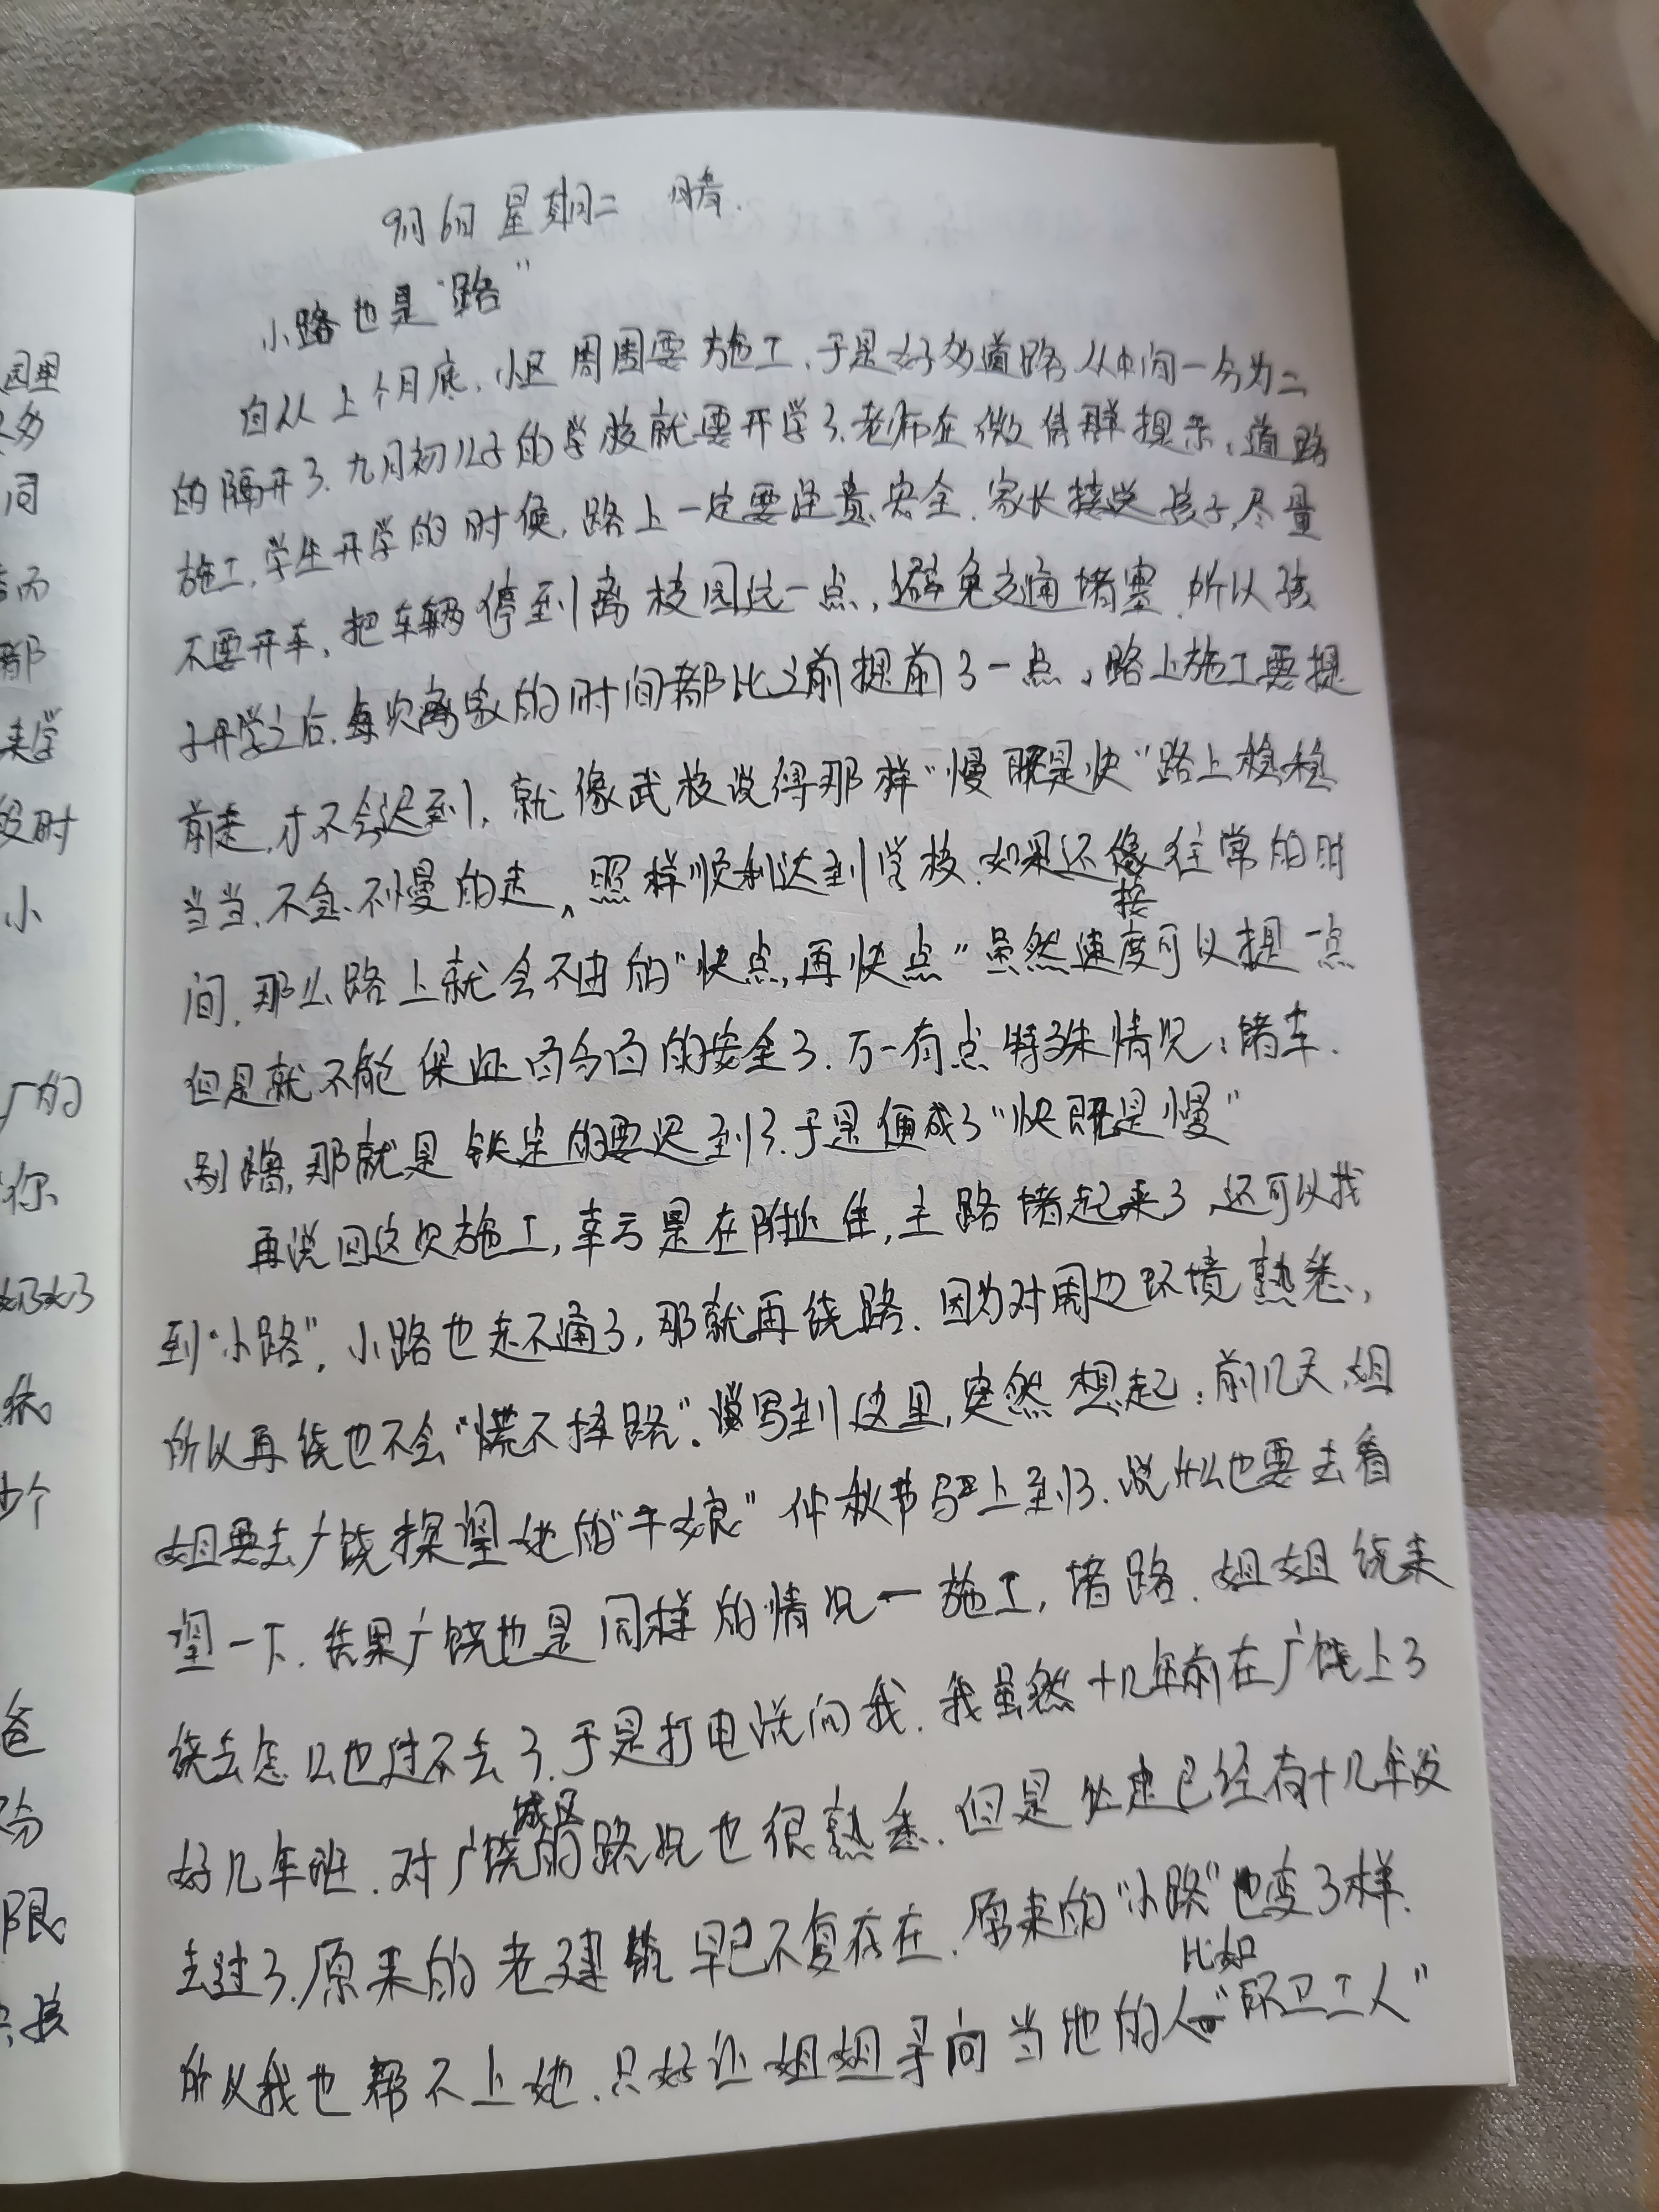 9月6日 星期二 晴.
小路也是"路"
自从上个月底,小区周围要施工,于是好多道路从中间一分为二
的隔开了.九月初儿子的学校就要开学了.老师在微信群提示:道路
施工,学生开学的时候,路上一定要注意安全.家长接送孩子,尽量
不要开车,把车辆停到离校园远一点,避免交通堵塞.所以孩
子开学之后.每次离家的时间都比之前提前了一点,路上施工要提
前走,才不会迟到,就像武校说得那样"慢既是快"路上稳稳
当当.不急.不慢的走,照样顺利达到学校.如果还像往常的时
按
间.那么路上就会不由的"快点,再快点"虽然速度可以提一点
但是就不能保证百分百的安全了.万一有点特殊情况:堵车.
剐蹭,那就是铁定的要迟到了.于是便成了"快既是慢"
再说回这次施工,幸亏是在附近住,主路堵起来了,还可以找
到"小路".小路也走不通了,那就再绕路.因为对周边环境熟悉,
所以再绕也不会"慌不择路".写到这里,突然想起:前几天,姐
姐要去广饶探望她的"干娘"仲秋节马上到了.说什么也要去看
望一下.结果广饶也是同样的情况一施工,堵路.姐姐绕来
绕去怎么也过不去了.于是打电话问我.我虽然十几年前在广饶上了
城区
好几年班.对广饶的路况也很熟悉.但是处建已经有十几年没
去过了.原来的老建筑早已不复存在.原来的"小路"也变了样.
比如
所以我也帮不上她.只好让姐姐寻问当地的人"环卫工人"
园里
同
而
都
来学
段时
小
的
你
好好了
个
爸
限
孩